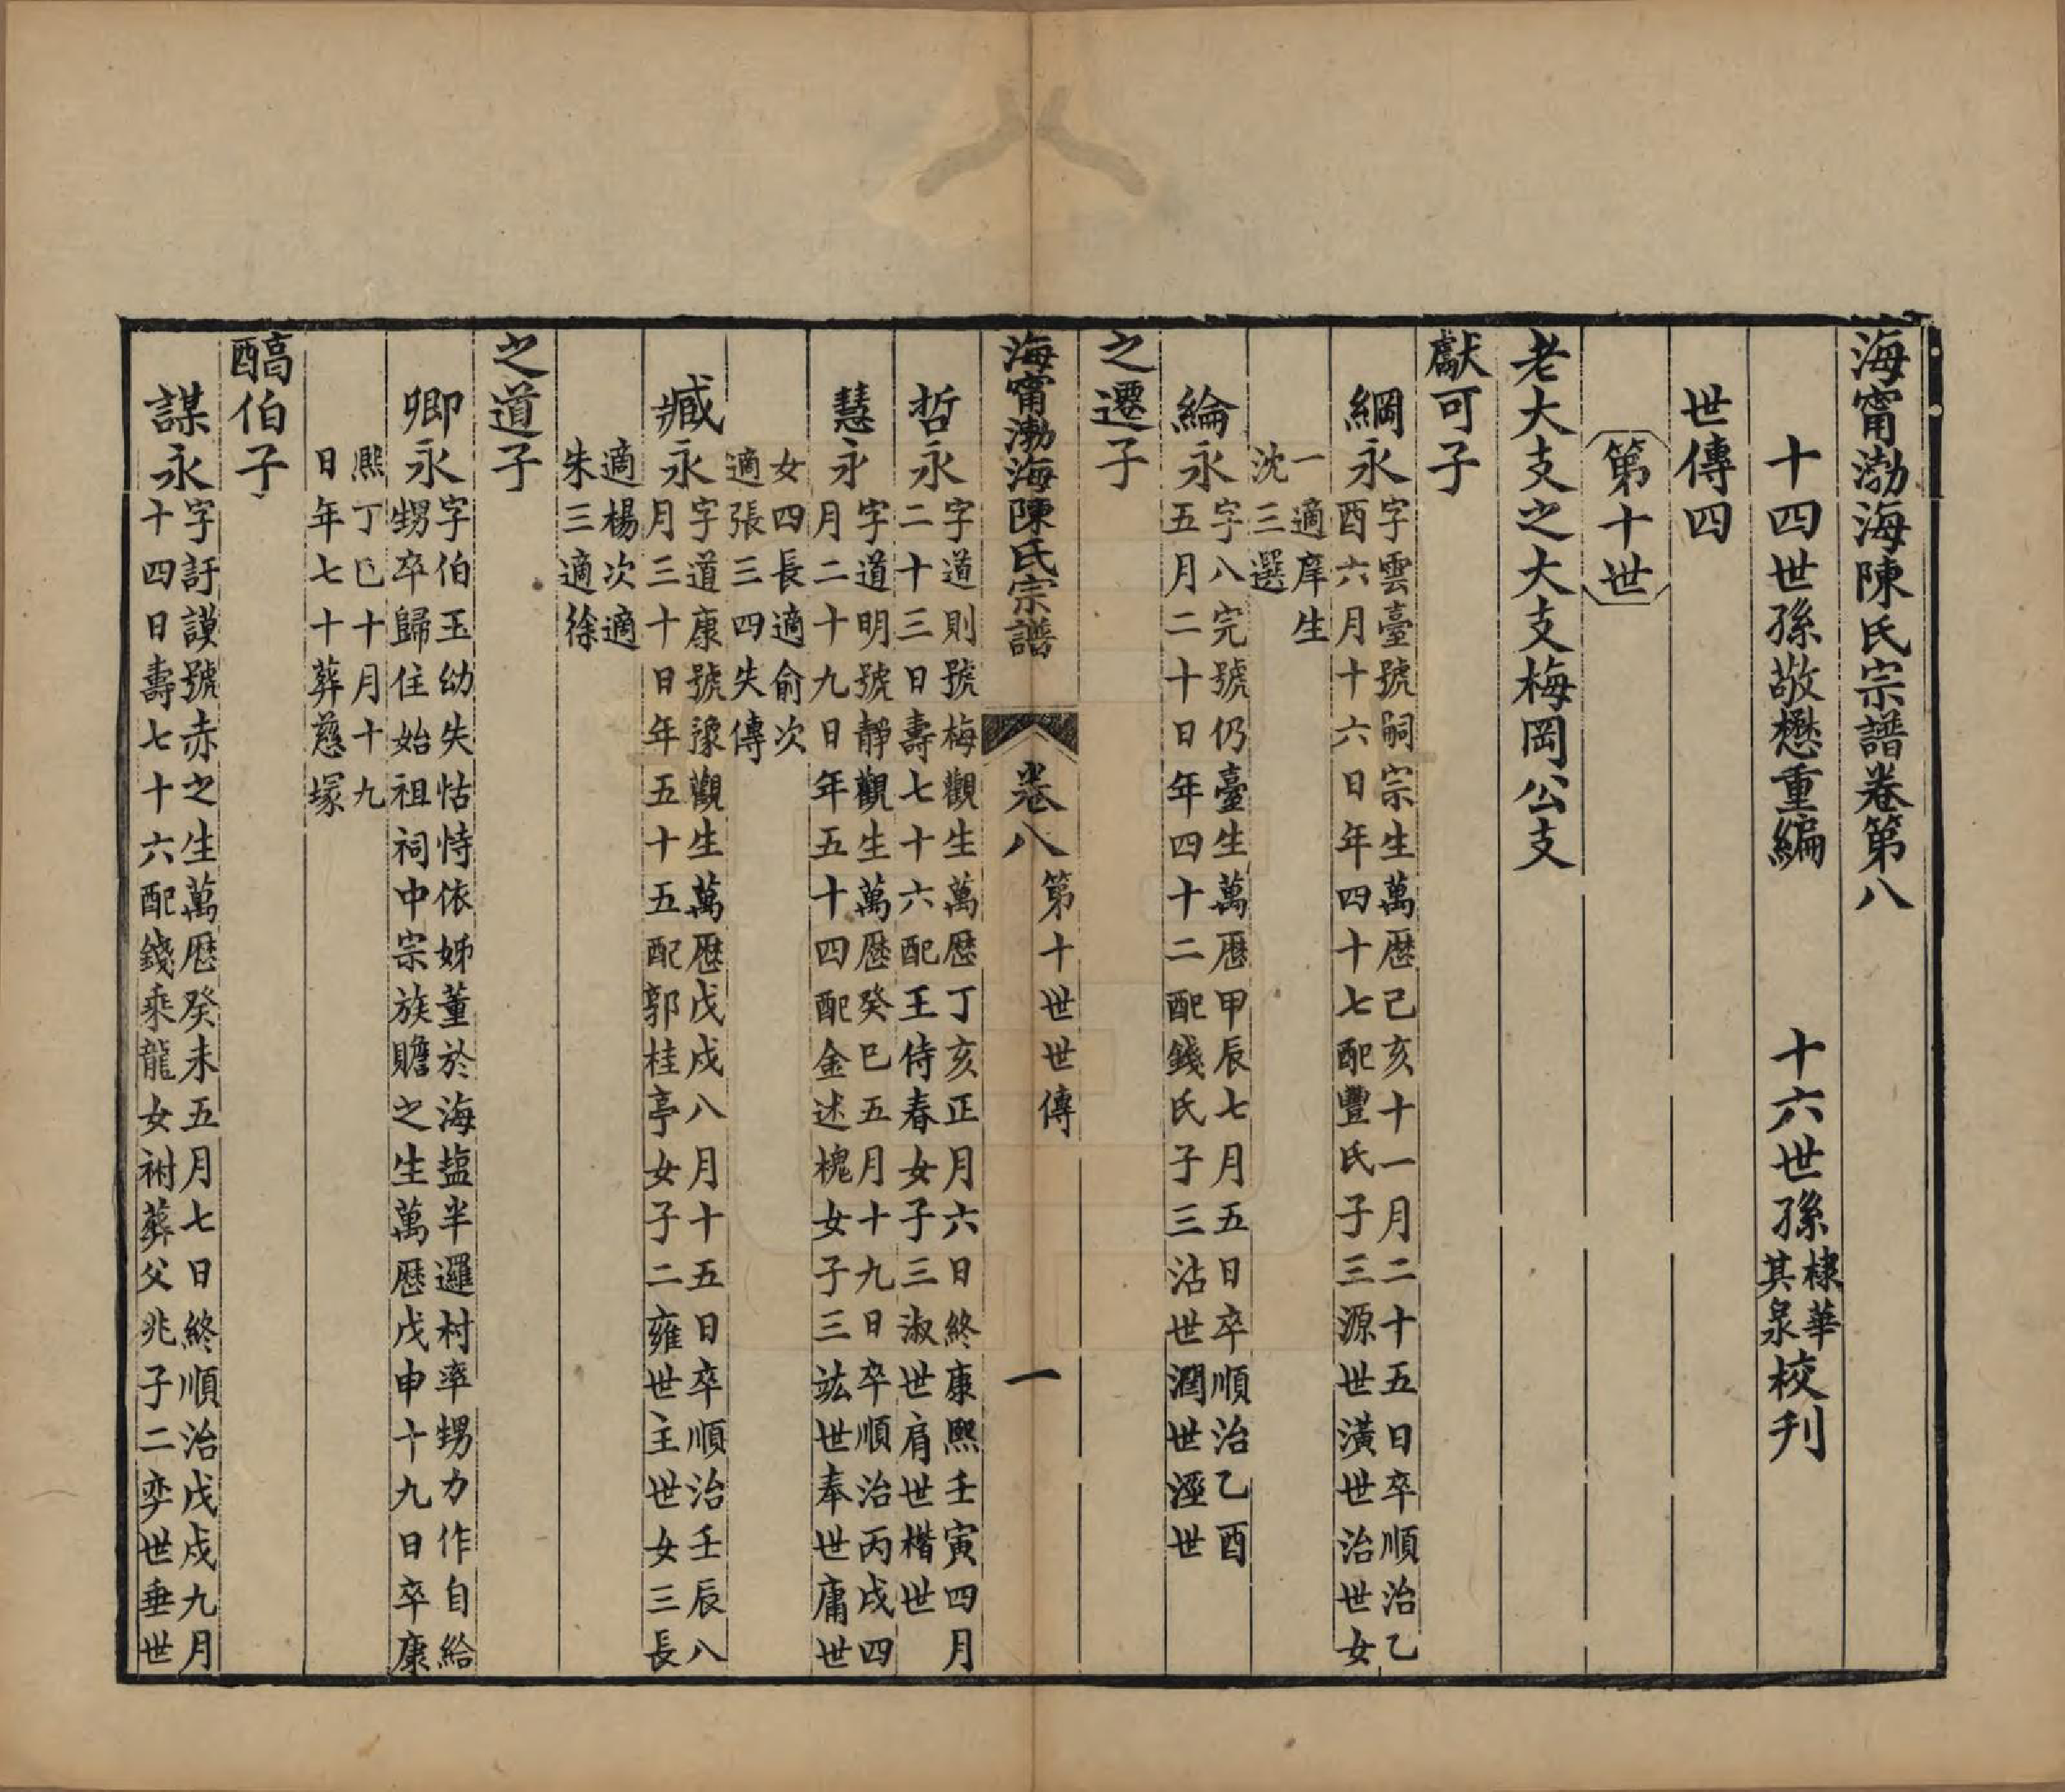 海甯渤海陳氏宗譜卷第八
十四世孫敬懋重編　十六世孫棣華其泉校刊
世傳四
第十世
老大支之大支梅岡公支
獻可子
綱永字雲臺號嗣宗生萬歷己亥十一月二十五日卒順治乙
酉六月十六日年四十七配豐氏子三源世潢世治世女
一適庠生
沈三選
綸永字八完號仍臺生萬歷甲辰七月五日卒順治乙酉
五月二十日年四十二配錢氏子三沾世潤世溼世
之遷子
海甯渤海陳氏宗譜　卷八　第十世世傳　一
哲永字道則號梅觀生萬歷丁亥正月六日終康熙壬寅四月
二十三日壽七十六配王侍春女子三淑世肩世楷世
慧永字道明號靜觀生萬歷癸巳五月十九日卒順治丙戌四
月二十九日年五十四配金述槐女子三竑世奉世庸世
女四長適俞次
適張三四失傳
臧永字道康號豫觀生萬歷戊戌八月十五日卒順治壬辰八
月三十日年五十五配郭桂亭女子二雍世主世女三長
適楊次適
朱三適徐
之道子
卿永字伯玉幼失怙恃依姊董於海塩半邏村率甥力作自給
甥卒歸住始祖祠中宗族贍之生萬歷戊申十九日卒康
熙丁巳十月十九
日年七十葬慈塚
醕伯子
謀永字訏謨號赤之生萬歷癸未五月七日終順治戊戌九月
十四日壽七十六配錢乘龍女祔葬父兆子二奕世垂世